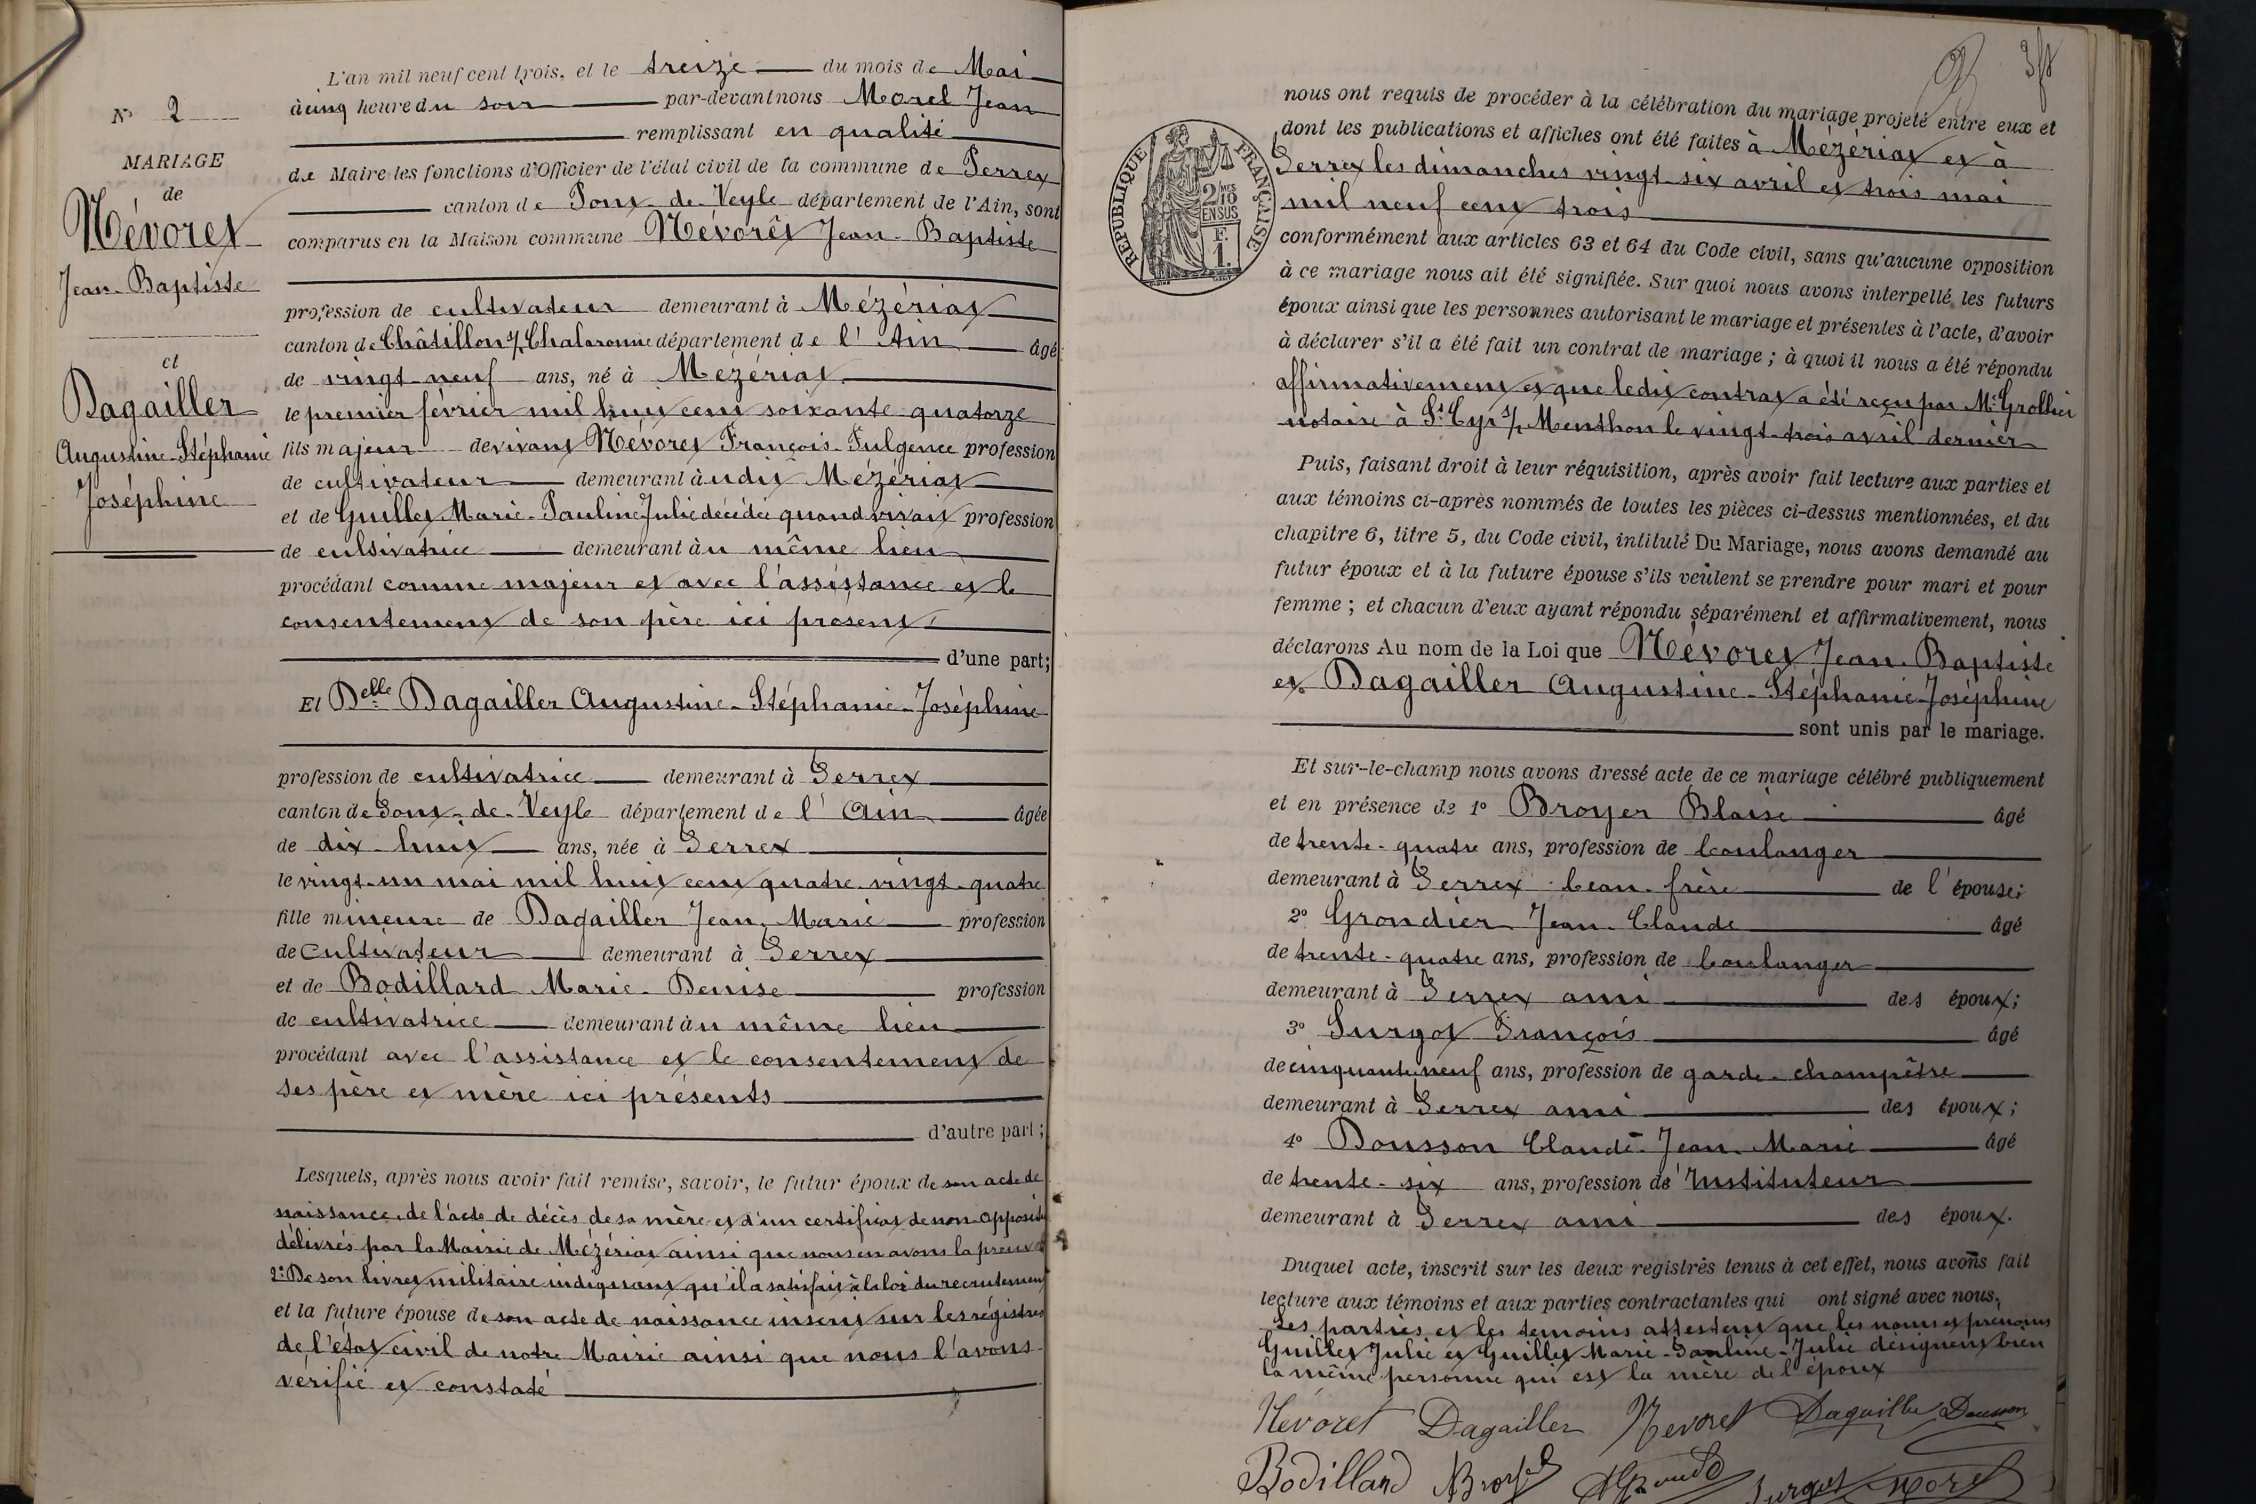 N° 2
MARIAGE
de
Névoret
Jean-Baptiste
et
Dagailler
Augustine-Stéphanie
Joséphine
L'an mil neuf cent trois, et le treize du mois de Mai
à cinq heure du soir par-devant nous Morel Jean
remplissant en qualité
de Maire les fonctions d'Officier de l'état civil de la commune de Perrex
canton de Pont-de-Veyle département de l'Ain, sont
comparus en la Maison commune Névorêt Jean-Baptiste
profession de cultivateur demeurant à Mézériat
canton de Châtillon s/ Chalaronne département de l'Ain âgé
de vingt-neuf ans, né à Mézériat
le premier février mil huit cent soixante-quatorze
fils majeur de vivant Névoret François-Fulgence profession
de cultivateur demeurant à udit Mézériat
et de Guillet Marie-Pauline Julie décédée quand vivait profession
de cultivatrice demeurant àu même lieu
procédant comme majeur et avec l'assistance et le
consentement de son père ici présent
d'une part;
Et Delle Dagailler Augustine-Stéphanie-Joséphine
profession de cultivatrice demeurant à Perrex
canton de Pont-de-Veyle département de l'Ain âgée
de dix-huit ans, née à Perrex
le vingt-un mai mil huit cent quatre-vingt-quatre
fille mineure de Dagailler Jean-Marie profession
de cultivateur demeurant à Perrex
et de Bodillard Marie-Denise profession
de cultivatrice demeurant àu même lieu
procédant avec l'assistance et le consentement de
ses père et mère ici présents
d'autre part;
Lesquels, après nous avoir fait remise, savoir, le futur époux de son acte de
naissance, de l'acte de décès de sa mère et d'un certificat de non-opposition
délivrés par la Mairie de Mézériat ainsi que nous en avons la preuve
2° De son livret militaire indiquant qu'il a satisfait à la loi du recrutement
et la future épouse de son acte de naissance inscrit sur les régistres
de l'état civil de notre Mairie ainsi que nous l'avons
vérifié et constaté
RÉPUBLIQUE FRANÇAISE
2/10 MES
EN SUS
F.
1.
nous ont requis de procéder à la célébration du mariage projeté entre eux et
dont les publications et affiches ont été faites à Mézériat et à
Perrex les dimanches vingt-six avril et trois mai
mil neuf cent trois
conformément aux articles 63 et 64 du Code civil, sans qu'aucune opposition
à ce mariage nous ait été signifiée. Sur quoi nous avons interpellé les futurs
époux ainsi que les personnes autorisant le mariage et présentes à l'acte, d'avoir
à déclarer s'il a été fait un contrat de mariage; à quoi il nous a été répondu
affirmativement et que ledit contrat a été reçu par Me Grollier
notaire à St Cyr s/ Menthon le vingt-trois avril dernier
Puis, faisant droit à leur réquisition, après avoir fait lecture aux parties et
aux témoins ci-après nommés de toutes les pièces ci-dessus mentionnées, et du
chapitre 6, titre 5, du Code civil, intitulé Du Mariage, nous avons demandé au
futur époux et à la future épouse s'ils veulent se prendre pour mari et pour
femme; et chacun d'eux ayant répondu séparément et affirmativement, nous
déclarons Au nom de la Loi que Névoret Jean-Baptiste
et Dagailler Augustine-Stéphanie-Joséphine
sont unis par le mariage.
Et sur-le-champ nous avons dressé acte de ce mariage célébré publiquement
et en présence de 1° Broyer Blaise âgé
de trente-quatre ans, profession de boulanger
demeurant à Perrex beau-frère de l'épouse;
2° Grondier Jean-Claude âgé
de trente-quatre ans, profession de boulanger
demeurant à Perrex ami des époux;
3° Surgot François âgé
de cinquante neuf ans, profession de garde-champêtre
demeurant à Perrex ami des époux;
4° Dousson Claude-Jean-Marie âgé
de trente-six ans, profession de Instituteur
demeurant à Perrex ami des époux.
Duquel acte, inscrit sur les deux registres tenus à cet effet, nous avons fait
lecture aux témoins et aux parties contractantes qui ont signé avec nous.
Les parties et les témoins attestent que les noms et prénoms
Guillet Julie et Guillet Marie-Pauline-Julie désignent bien
la même personne qui est la mère de l'époux
Névoret Dagailler Nevoret Dagailler Dousson
Bodillard Broyer Surgot Morel